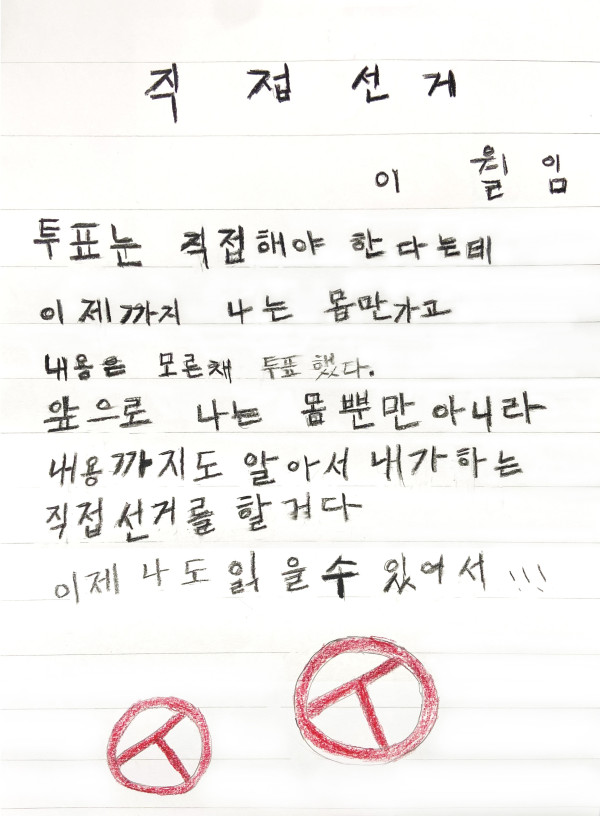 직접선거
이월임
투표는 직접해야 한다는데
이제까지 나는 몸만가고
내용은 모른채 투표했다.
앞으로 나는 몸뿐만아니라
내용까지도 알아서 내가하는
직접선거를 할거다
이제 나도 읽을수 있어서 !!!